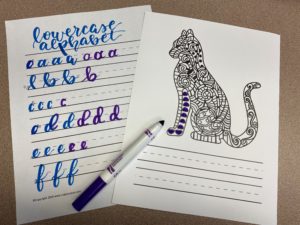 lowercase
alphabet
a a a a a a a
b b b b b
c c c c
d d d d d d d
e e e e e e
f f f